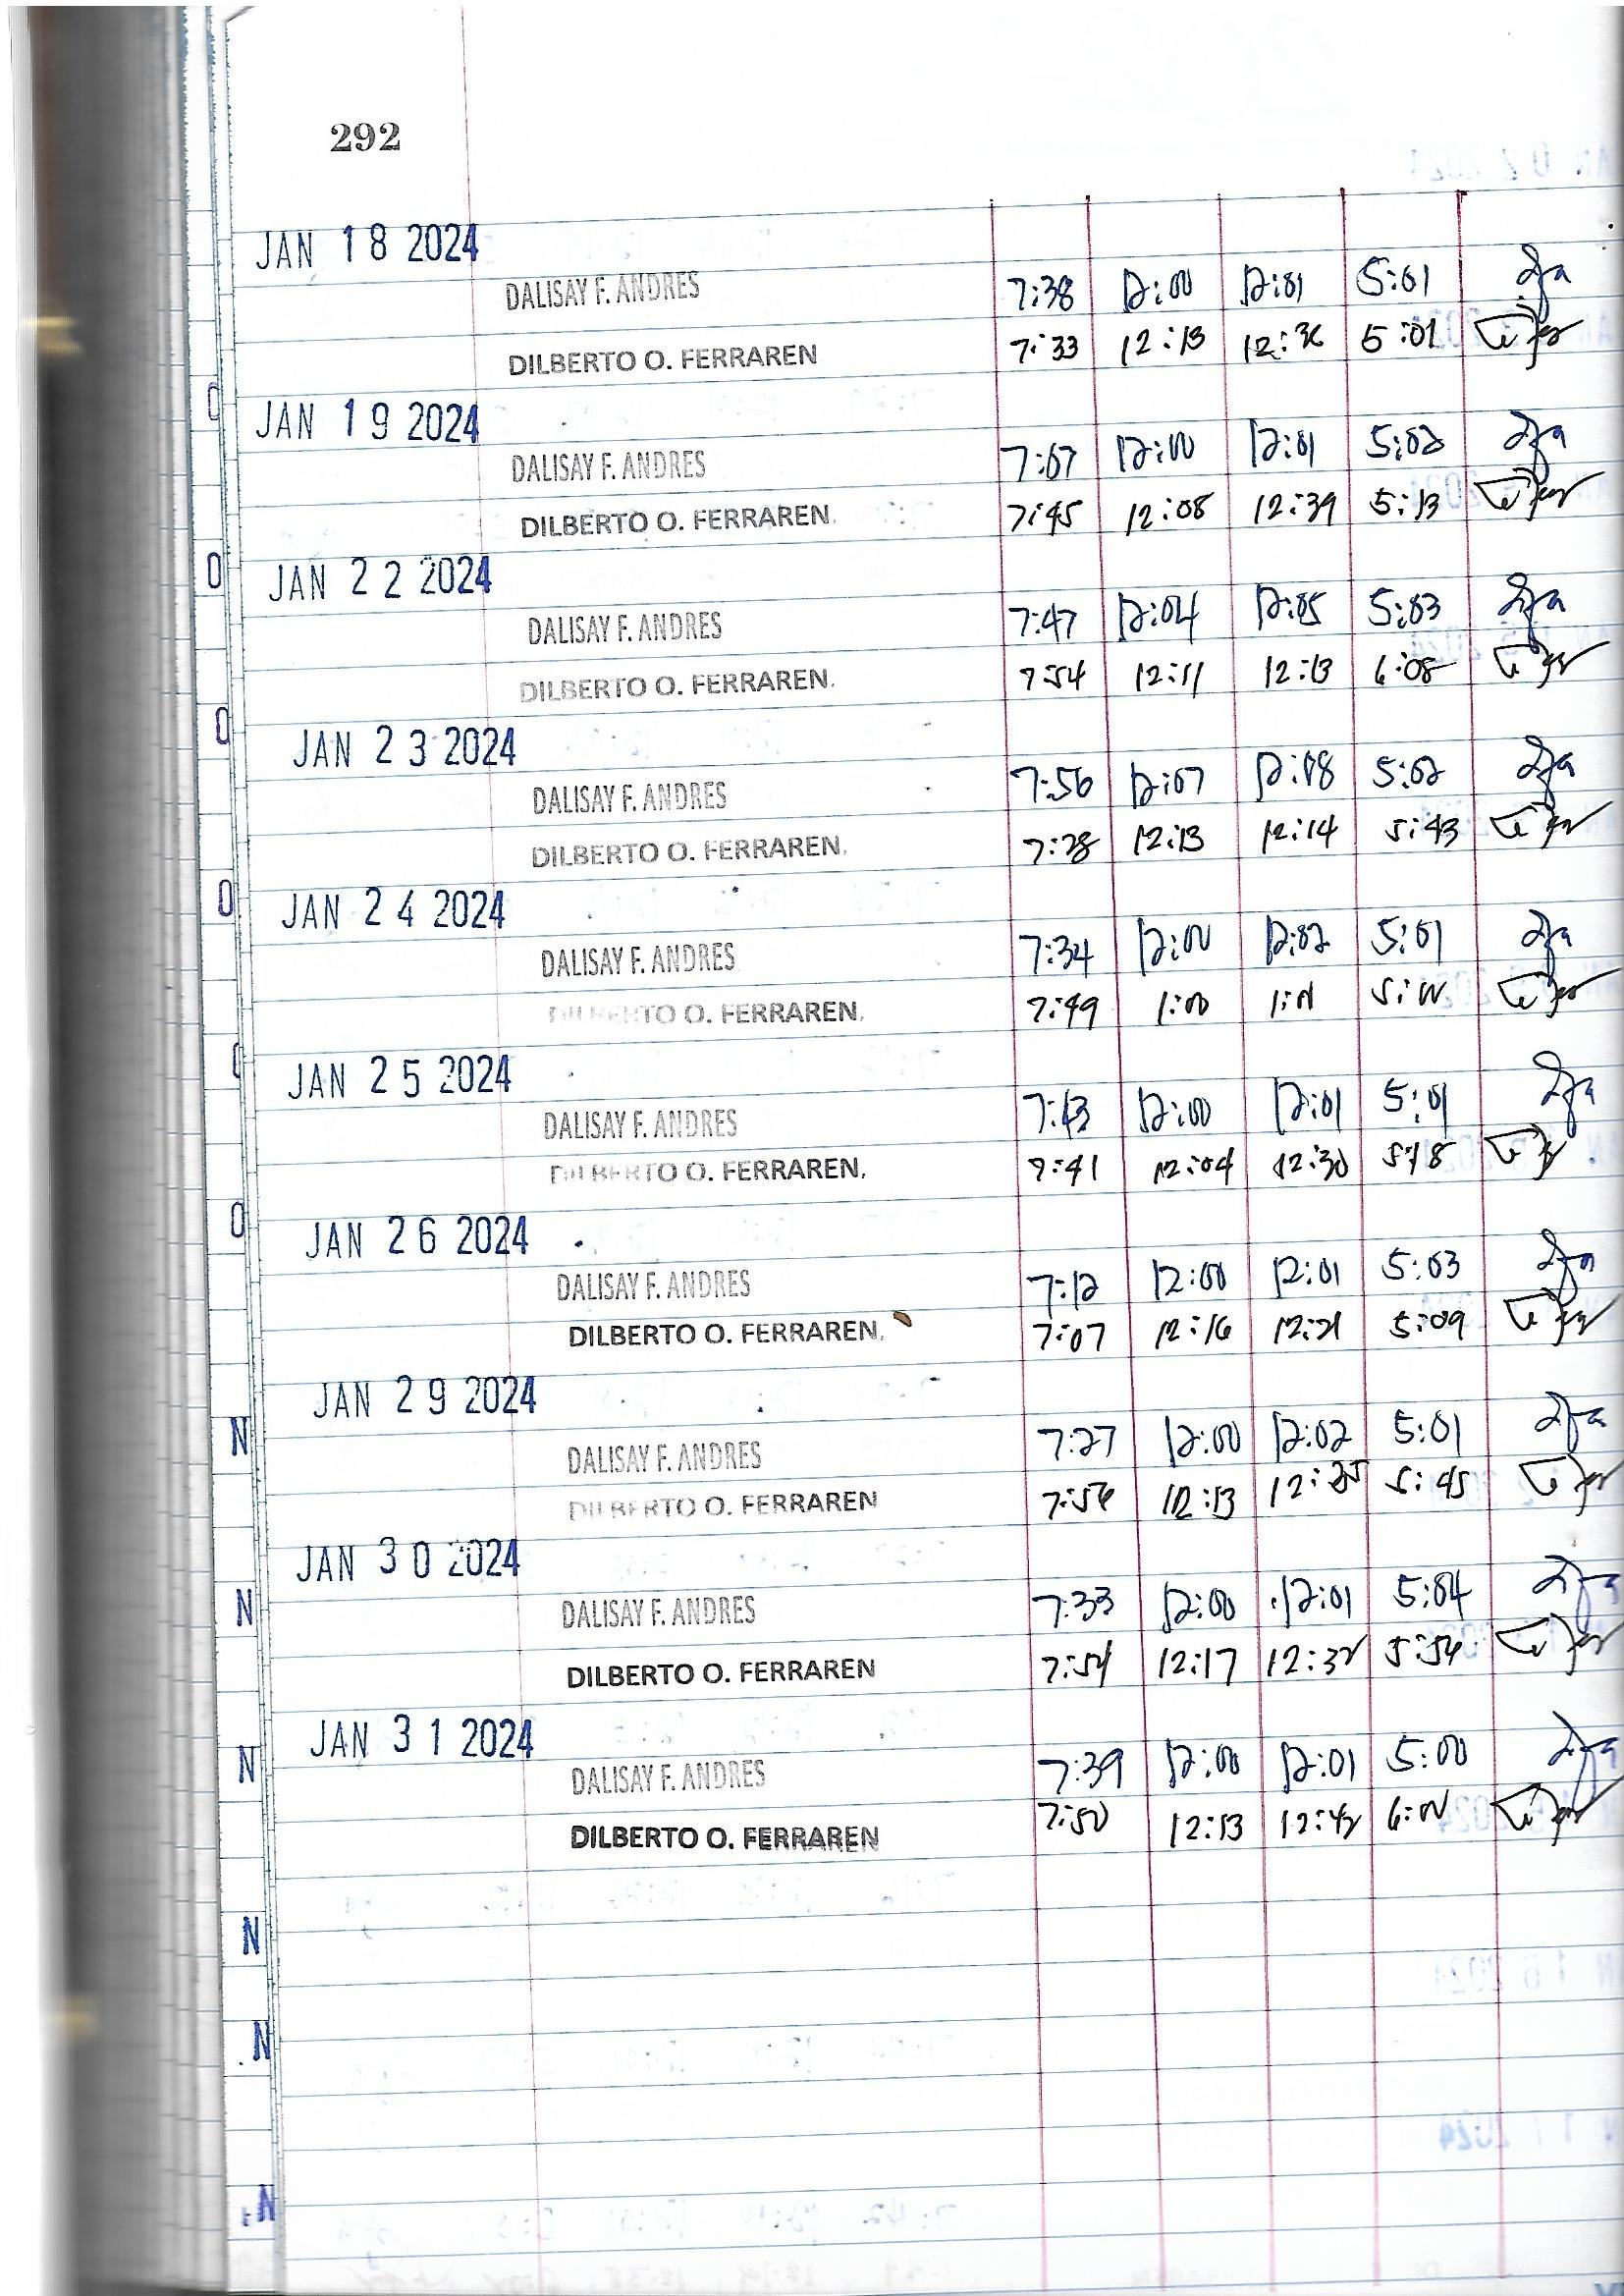 292
JAN 18 2024
DALISAY F. ANDRES 7:38 12:00 12:01 5:01
DILBERTO O. FERRAREN 7:33 12:13 12:36 5:01
JAN 19 2024
DALISAY F. ANDRES 7:07 12:00 12:01 5:02
DILBERTO O. FERRAREN. 7:45 12:08 12:39 5:13
JAN 22 2024
DALISAY F. ANDRES 7:47 12:04 12:05 5:03
DILBERTO O. FERRAREN. 7:54 12:11 12:13 6:08
JAN 23 2024
DALISAY F. ANDRES 7:56 12:07 12:08 5:02
DILBERTO O. FERRAREN. 7:28 12:13 12:14 5:43
JAN 24 2024
DALISAY F. ANDRES 7:34 12:00 12:02 5:01
DILBERTO O. FERRAREN. 7:49 1:00
JAN 25 2024
DALISAY F. ANDRES 7:43 12:00 12:01 5:01
DILBERTO O. FERRAREN. 7:41 12:04 12:30 5:18
JAN 26 2024
DALISAY F. ANDRES 7:12 12:00 12:01 5:03
DILBERTO O. FERRAREN. 7:07 12:16 12:21 5:09
JAN 29 2024
DALISAY F. ANDRES 7:27 12:00 12:02 5:01
DILBERTO O. FERRAREN 7:56 12:13 5:45
JAN 30 2024
DALISAY F. ANDRES 7:33 12:00 12:01 5:04
DILBERTO O. FERRAREN 12:17 12:32 5:54
JAN 31 2024
DALISAY F. ANDRES 7:39 12:00 12:01 5:00
DILBERTO O. FERRAREN 7:50 12:13 12:42